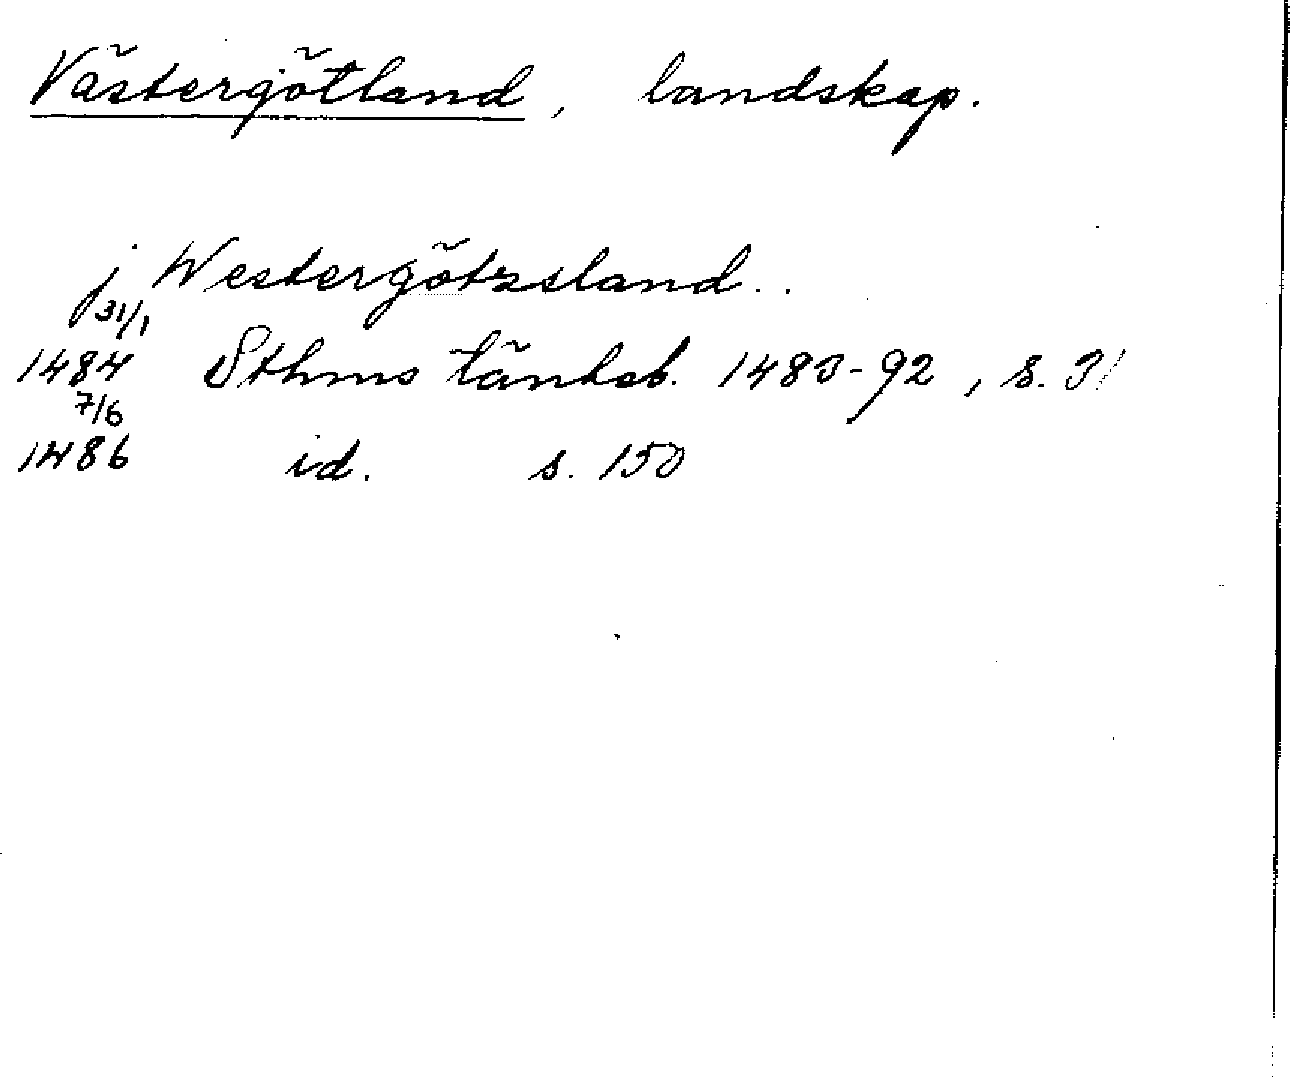 Västergötland, landskap.
j Westergötzsland..
31/1
1484 Sthms tänkeb. 1483-92, s. 31
7/6
1486 id. s. 150